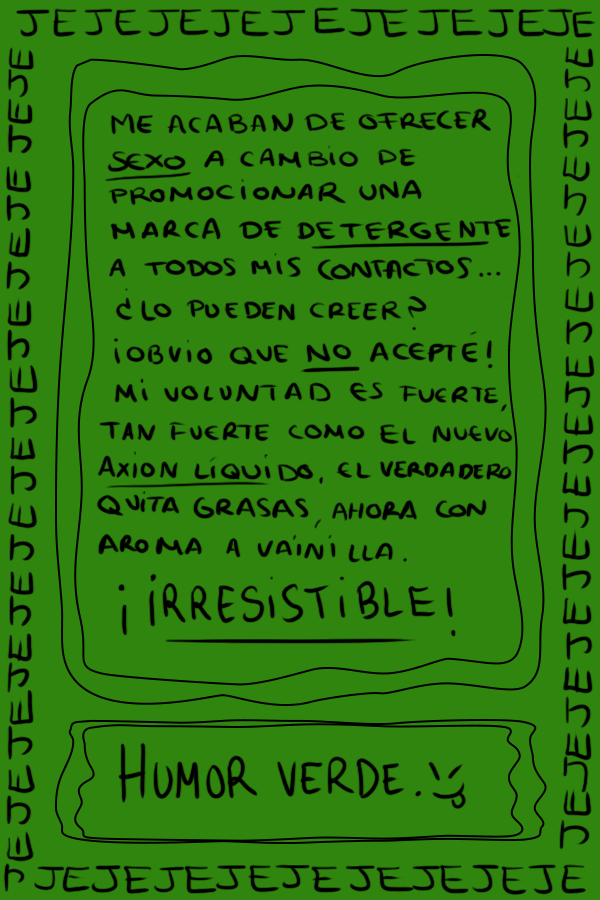 JEJEJEJEJEJEJEJEJEJE
ME ACABAN DE OFRECER
SEXO A CAMBIO DE
PROMOCIONAR UNA
MARCA DE DETERGENTE
A TODOS MIS CONTACTOS...
¿LO PUEDEN CREER?
¡OBVIO QUE NO ACEPTÉ!
MI VOLUNTAD ES FUERTE,
TAN FUERTE COMO EL NUEVO
AXION LÍQUIDO, EL VERDADERO
QUITA GRASAS, AHORA CON
AROMA A VAINILLA.
¡IRRESISTIBLE!
HUMOR VERDE.
JEJEJEJEJEJEJEJEJE